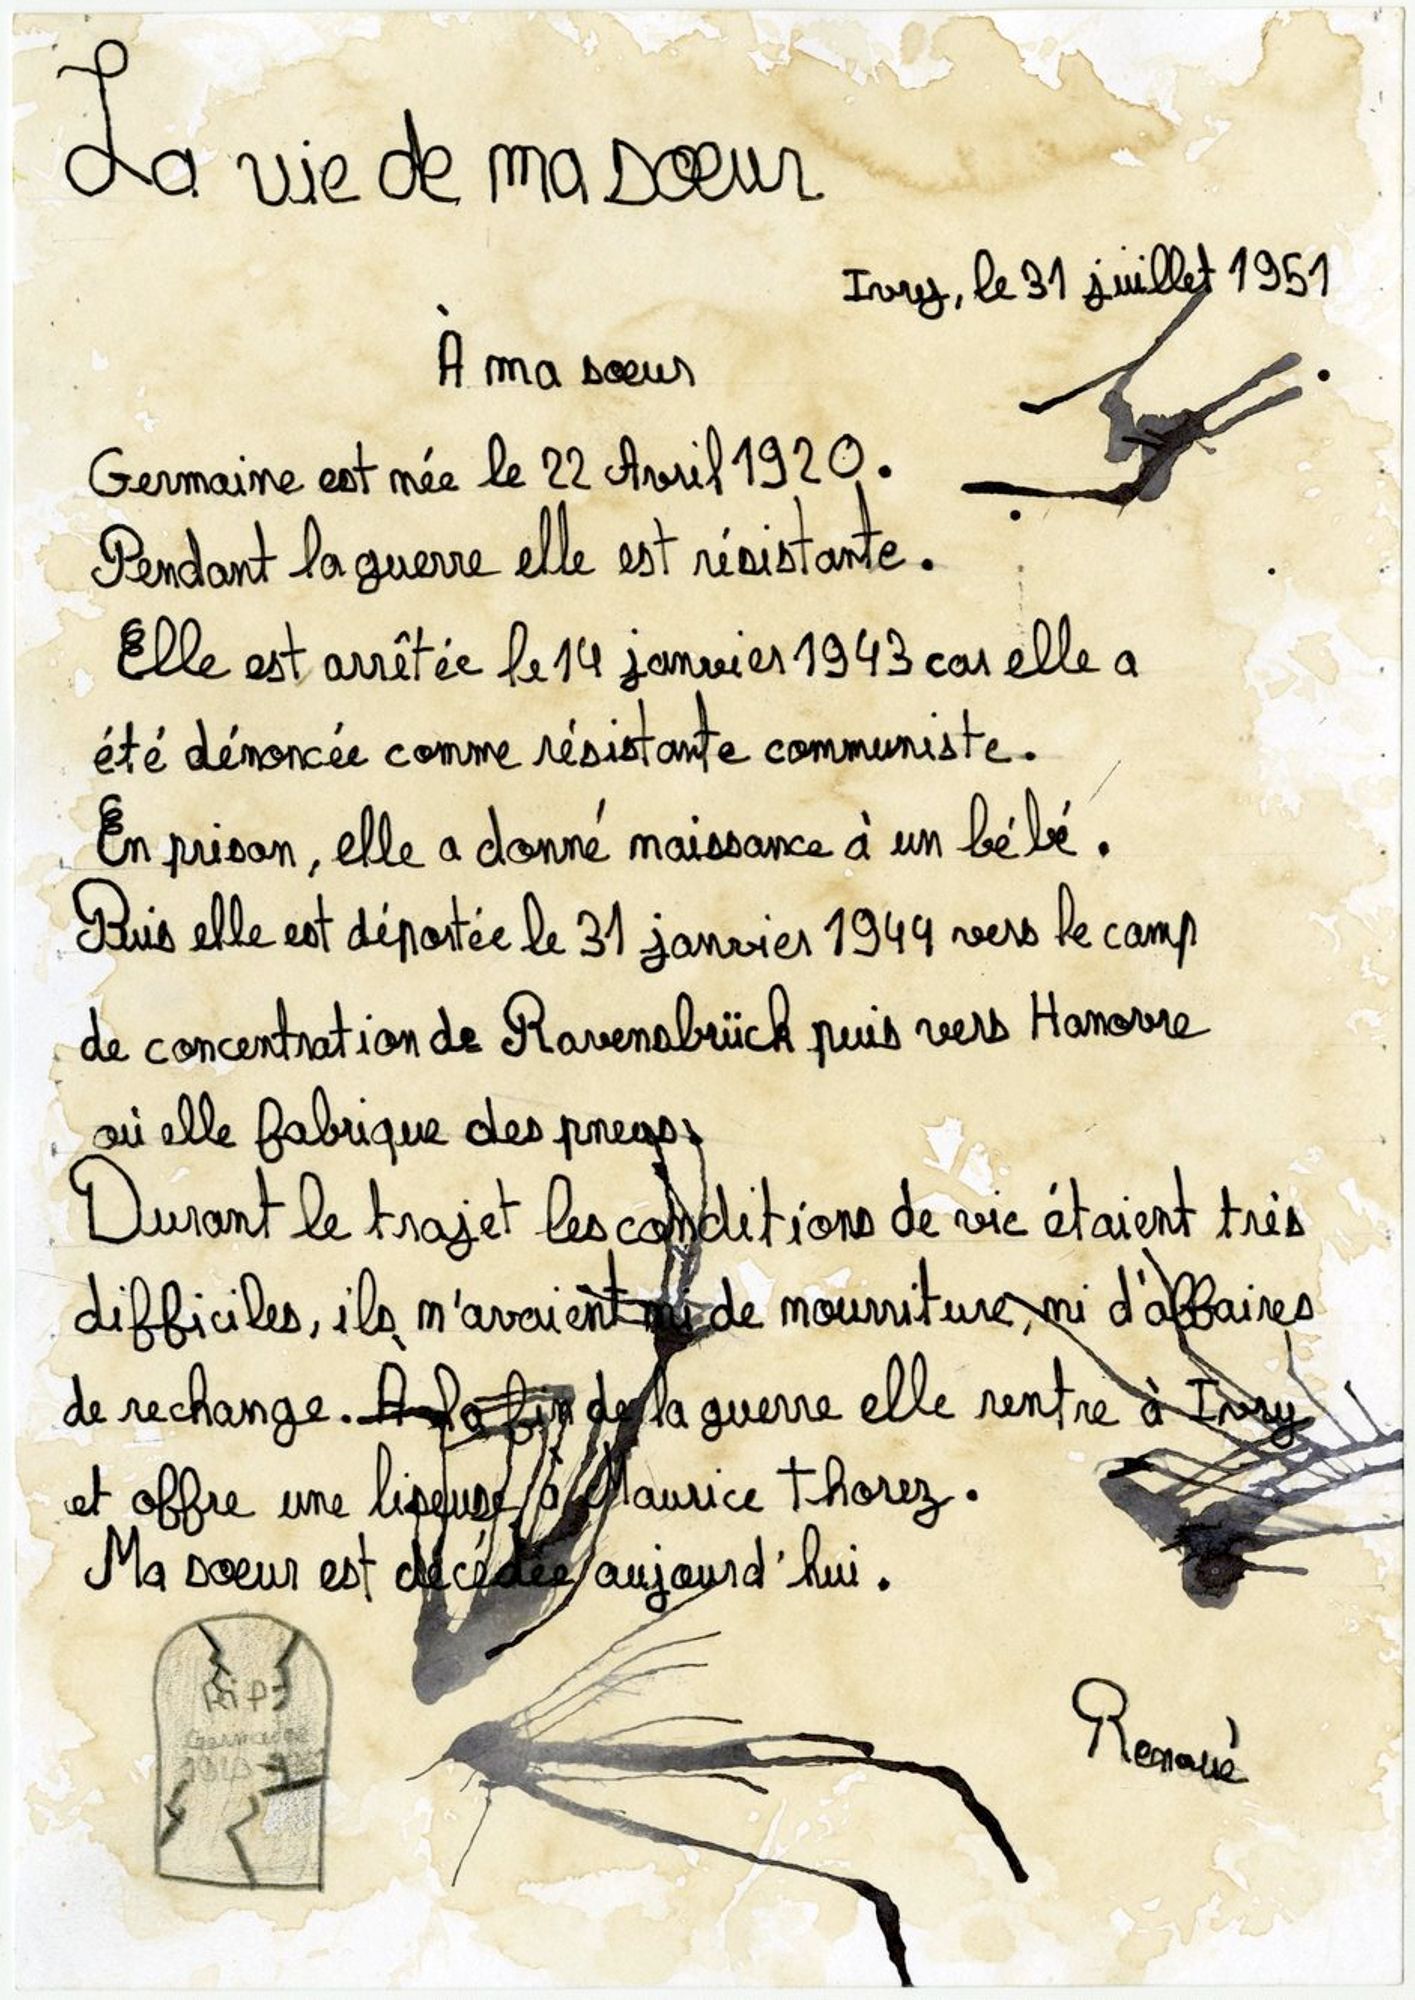 La vie de ma sœur
Ivry, le 31 juillet 1951
À ma sœur
Germaine est née le 22 Avril 1920.
Pendant la guerre elle est résistante.
Elle est arrêtée le 14 janvier 1943 car elle a
été dénoncée comme résistante communiste.
En prison, elle a donné naissance à un bébé.
Puis elle est déportée le 31 janvier 1944 vers le camp
de concentration de Ravensbrück puis vers Hanovre
où elle fabrique des pneus.
Durant le trajet les conditions de vie étaient très
difficiles, ils n'avaient ni de nourriture, ni d'affaires
de rechange. À la fin de la guerre elle rentre à Ivry
et offre une liseuse à Maurice Thorez.
Ma sœur est décédée aujourd'hui.
Rip
Germaine